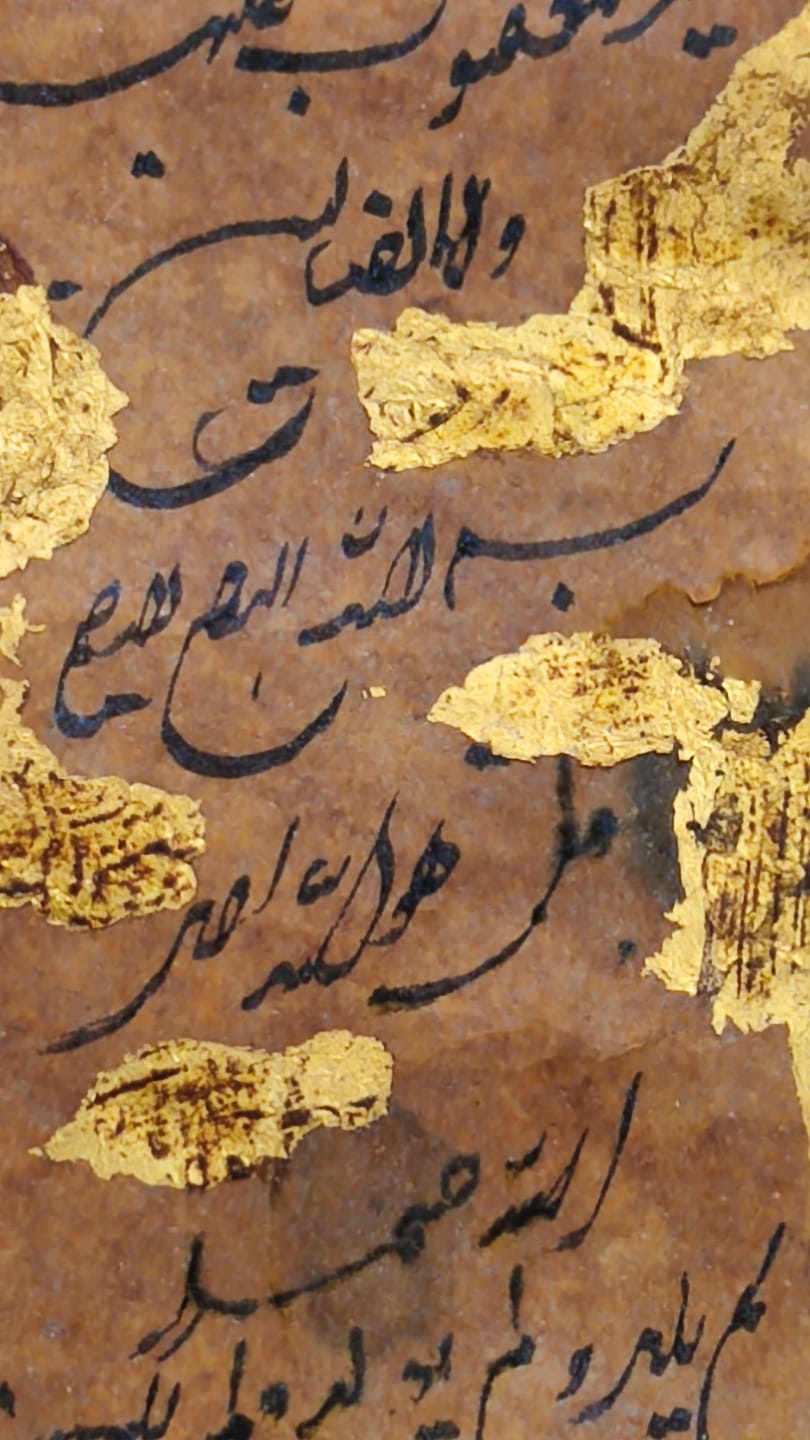 غير المغضوب عليهم
ولا الضالين
بسم الله الرحمن الرحيم
قل هو الله احد
الله الصمد
لم يلد و لم يولد ولم يكن